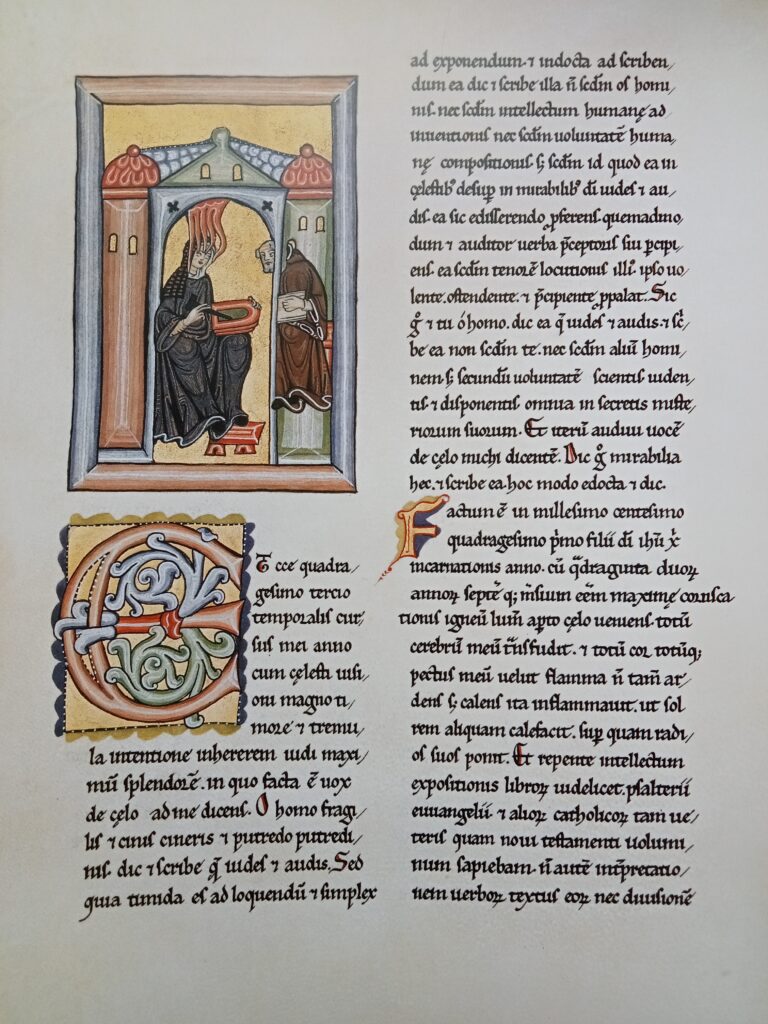 Et ecce quadra/
gesimo tercio
temporalis cur/
sus mei anno
cum cęlesti uisi/
oni magno ti/
more ⁊ tremu/
la intentione inhererem uidi maxi/
mũ splendorẽ. in quo facta ẽ uox
de cęlo ad me dicens. O homo fragi/
lis ⁊ cinis cineris ⁊ putredo putredi/
nis. dic ⁊ scribe q̨ uides ⁊ audis. Sed
quia timida es ad loquendũ ⁊ simplex
ad exponendum. ⁊ indocta ad scriben/
dum ea dic ⁊ scribe illa ñ scdm̃ os homi/
nis. nec scdm̃ intellectum humanę ad/
inuentionis nec scdm̃ uoluntatẽ huma/
nę compositionis s; scdm̃ id quod ea in
cęlestib᷒ desup̱ in mirabilib᷒ dĩ uides ⁊ au/
dis. ea sic edisserendo ꝓferens. quemadmo/
dum ⁊ auditor uerba p̃ceptoris sui p̱cipi/
ens. ea scdm̃ tenorẽ locutionis illi᷒. ipso uo/
lente. ostendente. ⁊ p̃cipiente ꝓpalat. Sic
gͦ ⁊ tu ó homo. dic ea q̨ uides ⁊ audis. ⁊ sc̃/
be ea non scdm̃ te. nec scdm̃ aliũ homi/
nem s; secundũ uoluntatẽ scientis uiden/
tis ⁊ disponentis omnia in secretis miste/
riorum suorum. Et iterũ audiui uocẽ
de cęlo michi dicentẽ. Dic gͦ mirabilia
hec. ⁊ scribe ea. hoc modo edocta ⁊ dic.
Factum ẽ in millesimo centesimo
quadragesimo p̾mo filii dĩ ihũ x̃
incarnationis anno. cũ q̃draginta duoꝝ
annoꝝ septẽ q; m̃sium eẽm maximę corusca
tionis igneũ lum̃ ap̱to cęlo ueniens. totũ
cerebrũ meũ tñsfudit. ⁊ totũ cor totũq;
pectus meũ uelut flamma ñ tam̃ ar/
dens s; calens ita inflammauit. ut sol
rem aliquam calefacit. sup̱ quam radi/
os suos ponit. Et repente intellectum
expositionis libroꝝ uidelicet. psalterii
euuangelii ⁊ alioꝝ catholicoꝝ tam ue/
teris quam noui testamenti uolumi/
num sapiebam. ñ autẽ intp̱retatio/
nem uerboꝝ textus eoꝝ nec diuisionẽ